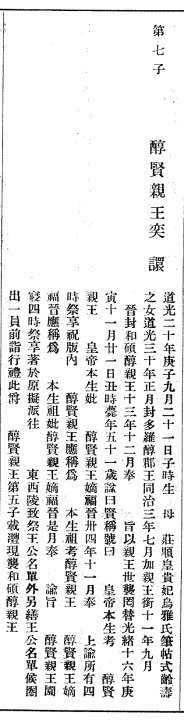 第七子
醇賢親王奕譞
道光二十年庚子九月二十一日子時生　母　莊順皇貴妃烏雅氏筆帖式齡壽
之女道光三十年正月封多羅醇郡王同治三年七月加親王銜十一年九月
晉封和碩醇親王十三年十二月奉　旨以親王世襲罔替光緒十六年庚
寅十一月廿一日丑時薨年五十一歲諡曰賢稱號曰　皇帝本生考　醇賢
親王　皇帝本生妣　醇賢親王嫡福晉卅四年十一月奉　上諭所有四
時祭享祝版內　醇賢親王應稱爲　本生祖考醇賢親王　醇賢親王嫡
福晉應稱爲　本生祖妣醇賢親王嫡福晉是月奉　諭旨　醇賢親王園
寢四時祭享著於原擬派往　東西陵致祭王公名單外另繕王公名單候圈
出一員前詣行禮此將　醇賢親王第五子載灃現襲和碩醇親王